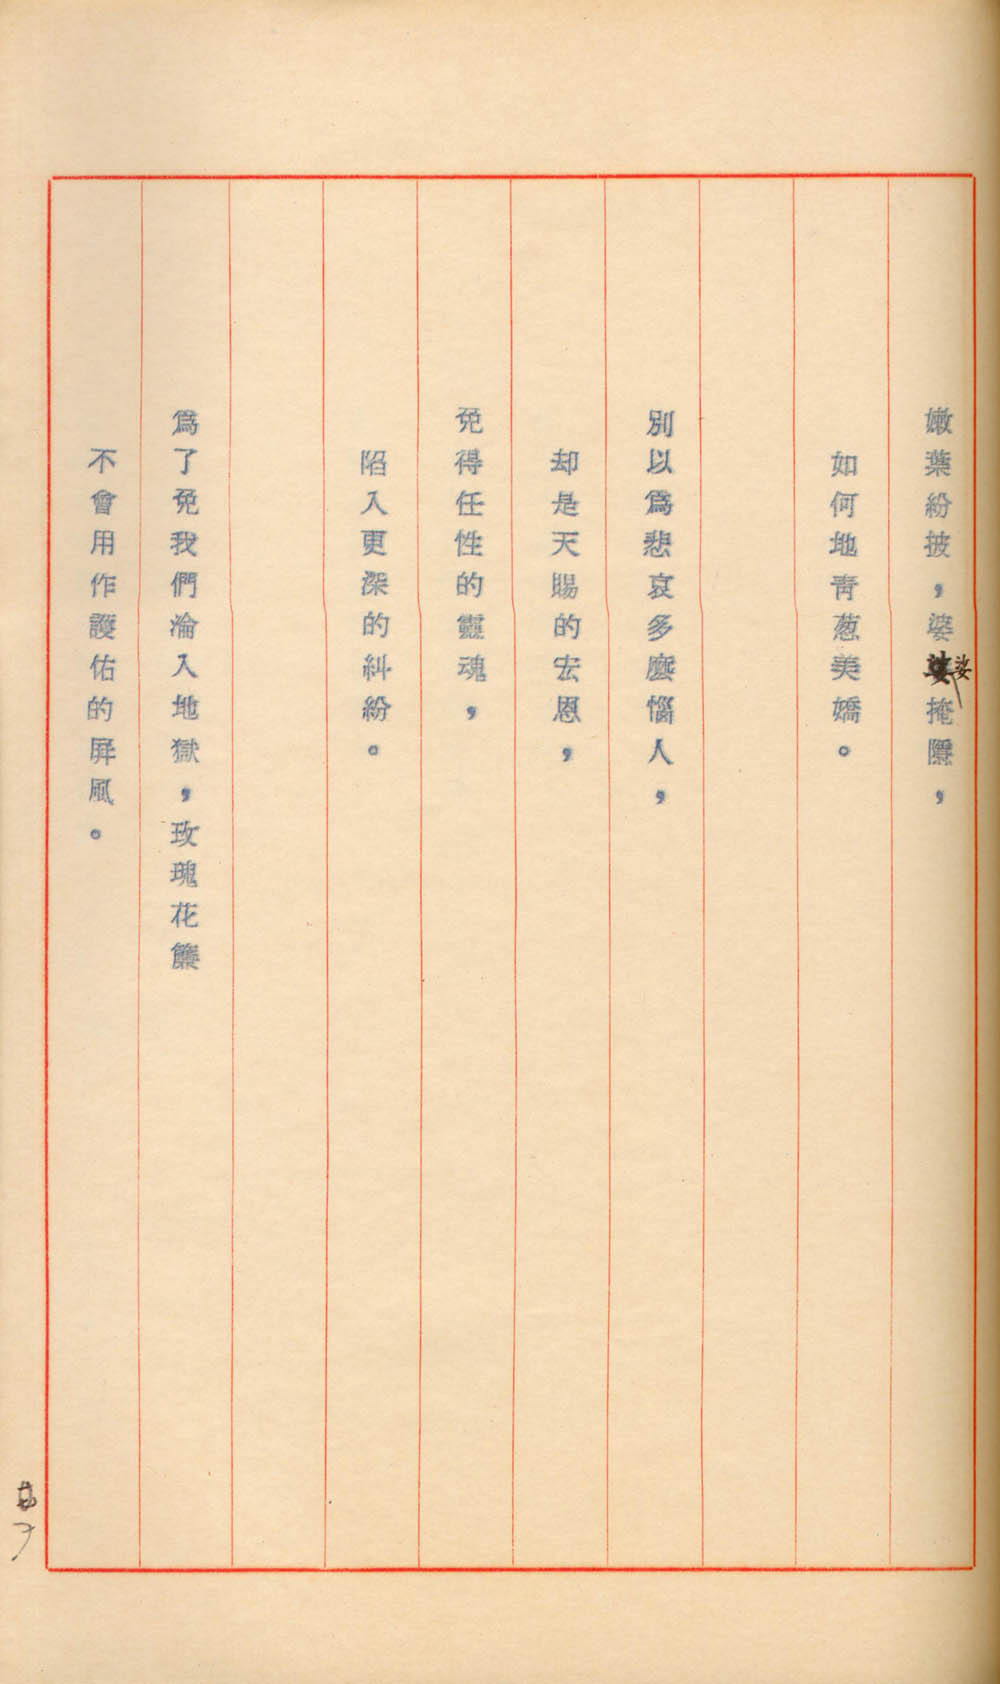 嫩葉紛披，婆娑掩隱，
如何地青葱美嬌。
別以為悲哀多麼惱人，
却是天賜的宏恩，
免得任性的靈魂，
陷入更深的糾紛。
為了免我們淪入地獄，玫瑰花簾
不會用作護佑的屏風。